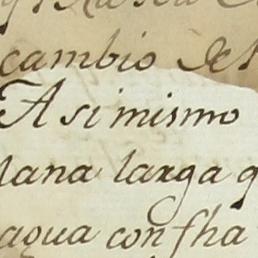 cambio del
Asimismo
lana larga q
agua con fha